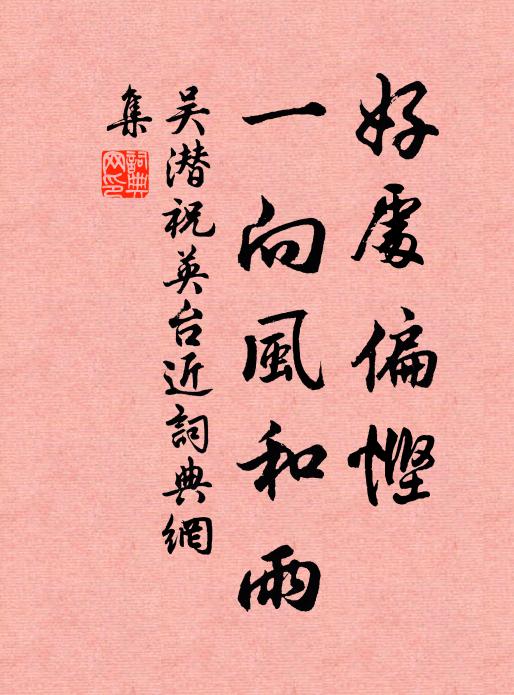 好處偏慳
一向風和雨
吴潛祝英台近詞典網
集
詞典
网印